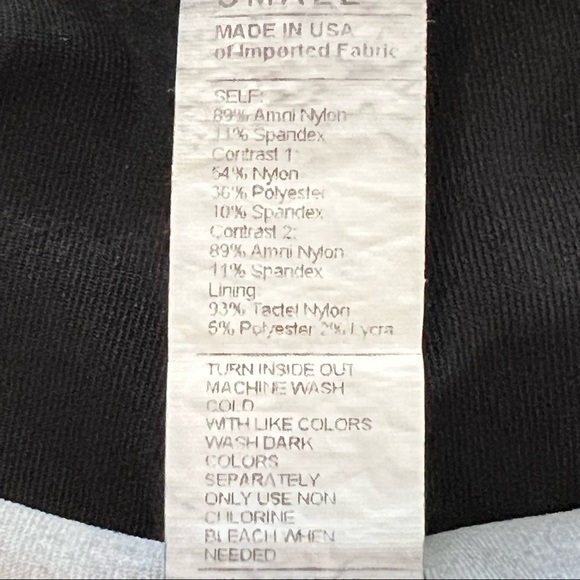 SMALL
MADE IN USA
of Imported Fabric
SELF:
89% Amni Nylon
11% Spandex
Contrast 1:
54% Nylon
36% Polyester
10% Spandex
Contrast 2:
89% Amni Nylon
11% Spandex
Lining:
93% Tactel Nylon
5% Polyester 2% Lycra
TURN INSIDE OUT
MACHINE WASH
COLD
WITH LIKE COLORS
WASH DARK
COLORS
SEPARATELY
ONLY USE NON
CHLORINE
BLEACH WHEN
NEEDED